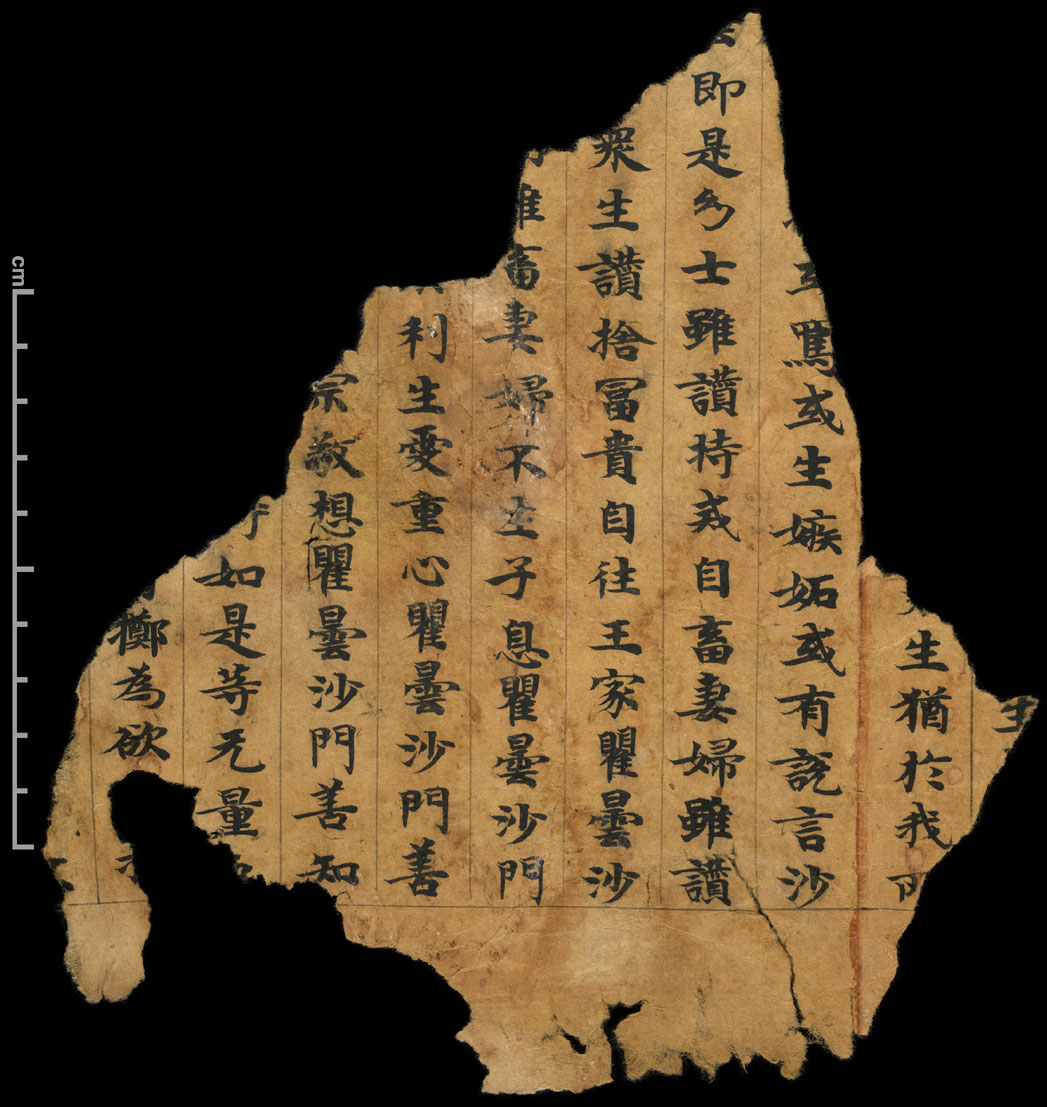 生
生猶於我
至罵或生嫉妬或有說言沙
即是幻士雖讃持戒自畜妻婦雖讃
衆生讃捨冨貴自往王家瞿曇沙
雖畜妻婦不生子息瞿曇沙門
利生愛重心瞿曇沙門善
宗敬想瞿曇沙門善知
如是等无量
擲為欲